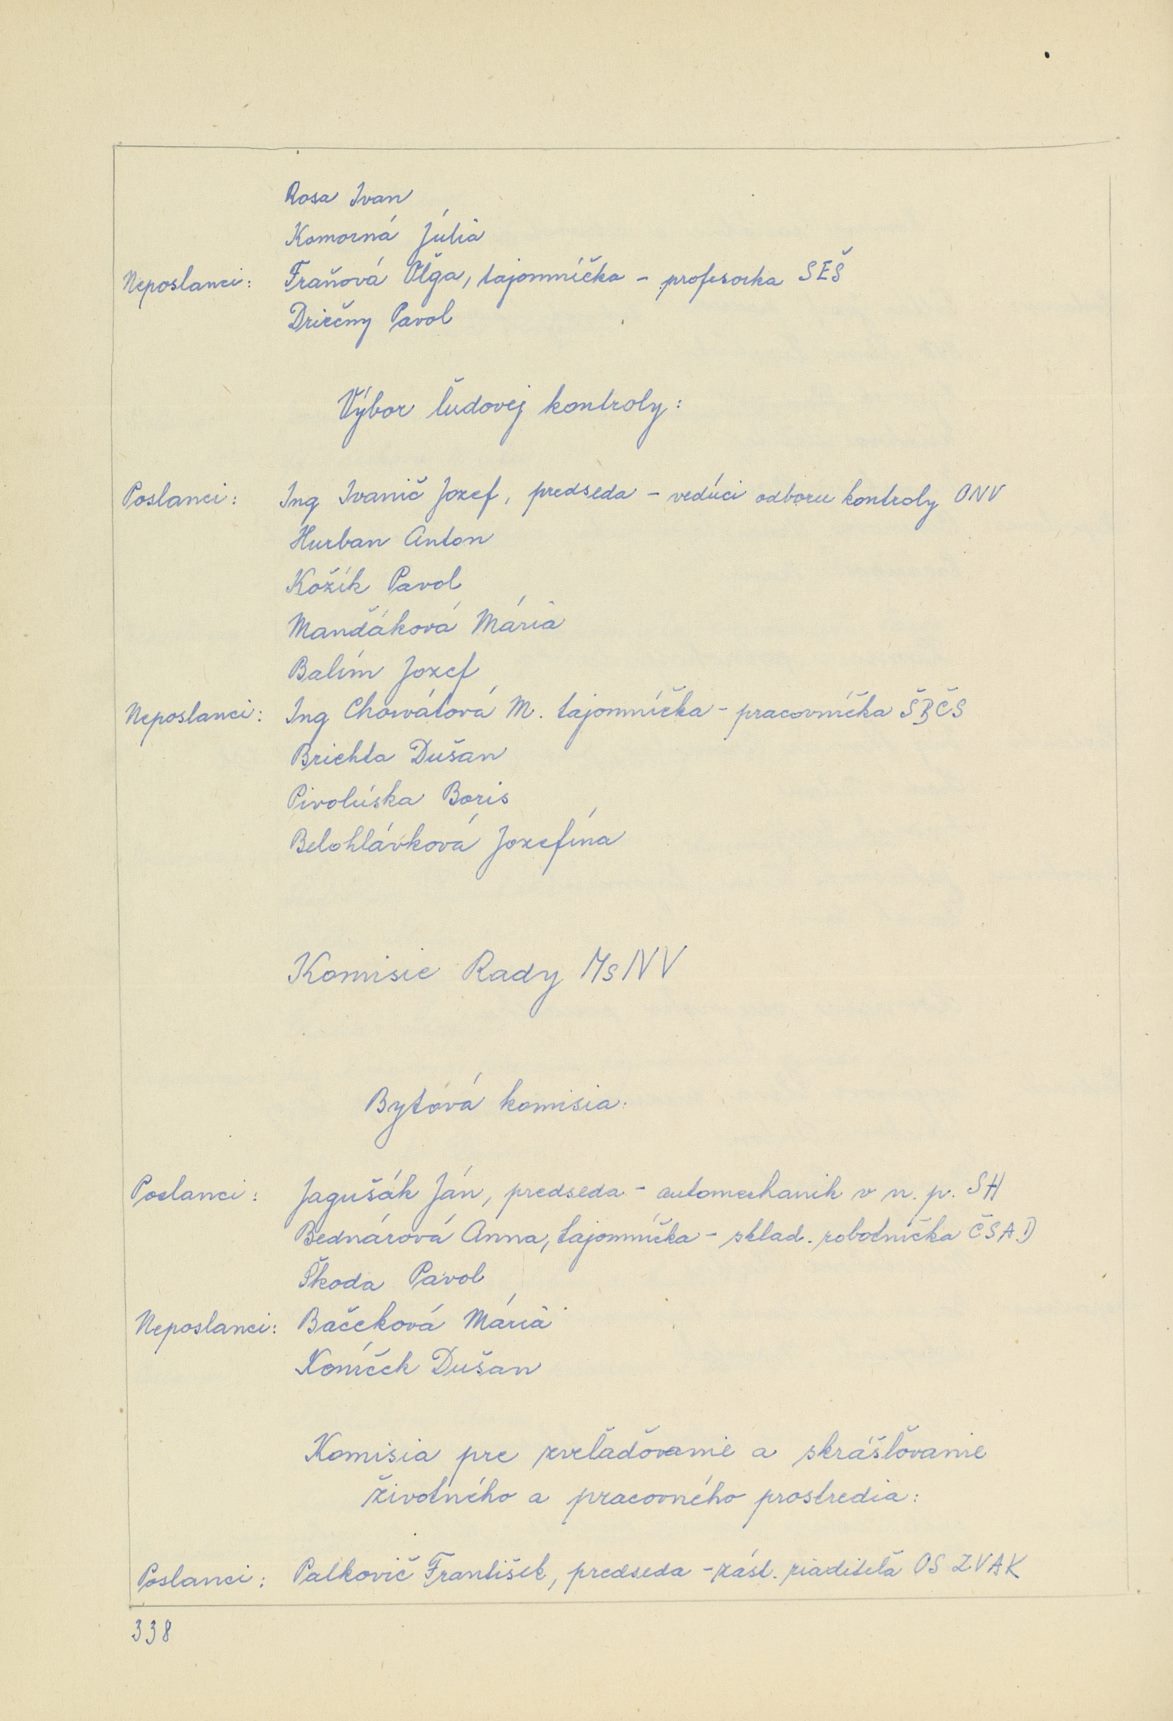 Rosa Ivan
Komorná Júlia
Neposlanci: Fraňová Oľga, tajomníčka - profesorka SEŠ
Driečny Pavol
Výbor ľudovej kontroly:
Poslanci: Ing Ivanič Jozef, predseda - vedúci odboru kontroly ONV
Hurban Anton
Kožík Pavol
Mandáková Mária
Balím Jozef
Neposlanci: Ing Chorvátová M. tajomníčka - pracovníčka ŠBČS
Brichta Dušan
Pivolúska Boris
Belohlávková Jozefína
Komisie Rady MsNV
Bytová komisia:
Poslanci: Jagušák Ján, predseda - automechanik v n. p. SH
Bednárová Anna, tajomníčka - sklad. robotníčka ČSAD
Škoda Pavol
Neposlanci: Bačeková Mária
Koníček Dušan
Komisia pre zveľaďovanie a skrášľovanie
životného a pracovného prostredia:
Poslanci: Palkovič František, predseda - zást. riaditeľa OS ZVAK
338